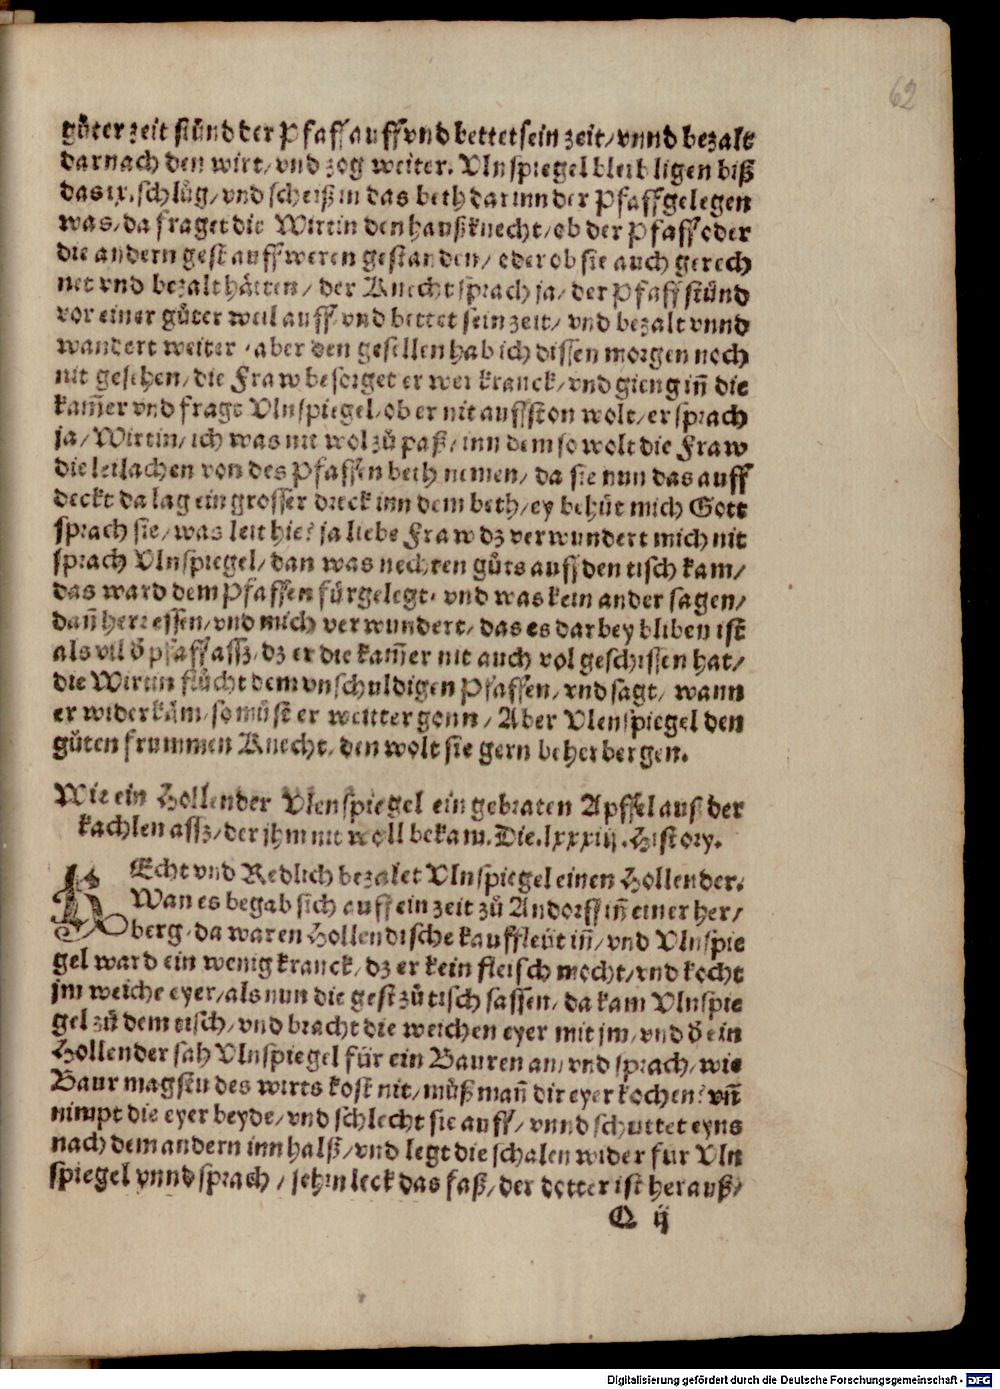 62
gůter zeit stůnd der Pfaff auff vnd bettet sein zeit/ vnnd bezalt
darnach den wirt/ vnd zog weiter. Vlnspiegel bleib ligen biß
das ix. schlůg/ vnd scheiß in das beth darinn der Pfaff gelegen
was/ da fraget die Wirtin den haußknecht/ ob der Pfaff oder
die andern gest auff weren gestanden/ oder ob sie auch gerech
net vnd bezalt hätten/ der Knecht sprach ja/ der Pfaff stůnd
vor einer gůter weil auff vnd bettet sein zeit/ vnd bezalt vnnd
wandert weiter/ aber den gesellen hab ich dissen morgen noch
nit gesehen/ die Fraw besorget er wer kranck/ vnd gieng iñ die
kam̃er vnd fragt Vlnspiegel/ ob er nit auffston wolt/ er sprach
ja/ Wirtin/ ich was nit wol zů paß/ inn dem so wolt die Fraw
die leilachen von des Pfaffen beth nemen/ da sie nun das auff
deckt da lag ein grosser dreck inn dem beth/ ey behüt mich Gott
sprach sie/ was leit hie? ja liebe Fraw dz verwundert mich nit
sprach Vlnspiegel/ dan was nechten gůts auff den tisch kam/
das ward dem Pfaffen fürgelegt/ vnd was kein ander sagen/
dañ herr essen/ vnd mich verwundert/ das es darbey bliben ist
als vil ð pfaff assz/ dz er die kam̃er nit auch vol geschissen hat/
die Wirtin flůcht dem vnschuldigen Pfaffen/ vnd sagt/ wann
er widerkäm/ so můst er weitter gonn/ Aber Vlenspiegel den
gůten frummen Knecht/ den wolt sie gern beherbergen.
Wie ein Hollender Vlenspiegel ein gebraten Apffel auß der
kachlen assz/ der jhm nit woll bekam. Die. lxxxiij. History.
REcht vnd Redlich bezalet Vlnspiegel einen Hollender.
Wan es begab sich auff ein zeit zů Andorff iñ einer her/
berg/ da waren Hollendische kauffleüt iñ/ vnd Vlnspie
gel ward ein wenig kranck/ dz er kein fleisch mocht/ vnd kocht
jm weiche eyer/ als nun die gest zů tisch sassen/ da kam Vlnspie
gel zů dem tisch/ vnd bracht die weichen eyer mit jm/ vnd ð ein
Hollender sah Vlnspiegel für ein Bauren an/ vnd sprach/ wie
Baur magstu des wirts kost nit/ můß mañ dir eyer kochen? vñ
nimpt die eyer beyde/ vnd schlecht sie auff/ vnnd schuttet eyns
nach dem andern inn halß/ vnd legt die schalen wider fur Vln
spiegel vnnd sprach/ sehin leck das faß/ der dotter ist herauß/
Q ij
Digitalisierung gefördert durch die Deutsche Forschungsgemeinschaft - DFG